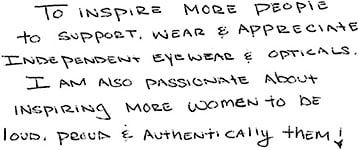 TO INSPIRE MORE PEOPlE
to SUPPORT, WEAR & APPRECIATE
INDEPENDENT EYEWEAR & OPTICALS.
I AM ALSO PASSIONATE ABOUT
INSPIRING MORE WOMEN TO BE
lOUD, PROUD & AUTHENTICALLY THEM!